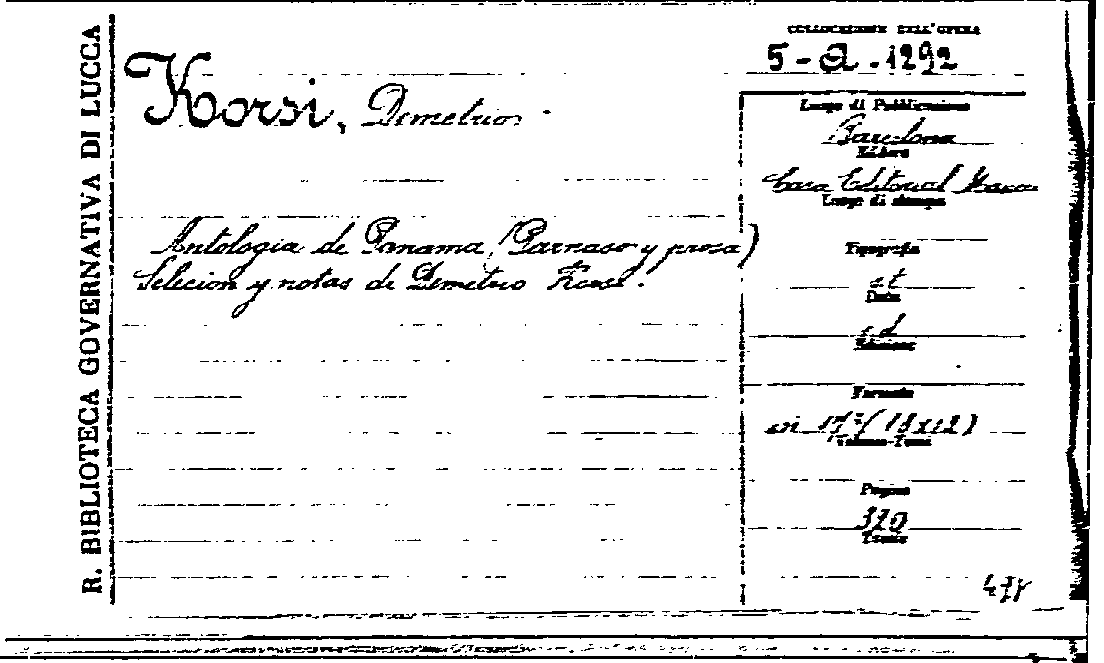 R. BIBLIOTECA GOVERNATIVA DI LUCCA
Korsi, Demetrio
Antologia de Panama (Parnaso y prosa)
Selecion y notas de Demetrio Korsi.
COLLOCAZIONE DELL'OPERA
5-Q.1292
Luogo di Pubblicazione
Barcelona
Editore
Casa Editorial
Luogo di stampa
Tipografia
st
Data
sd
Edizione
Formato
in (18x12)
Volume-Tomi
Pagine
320
478